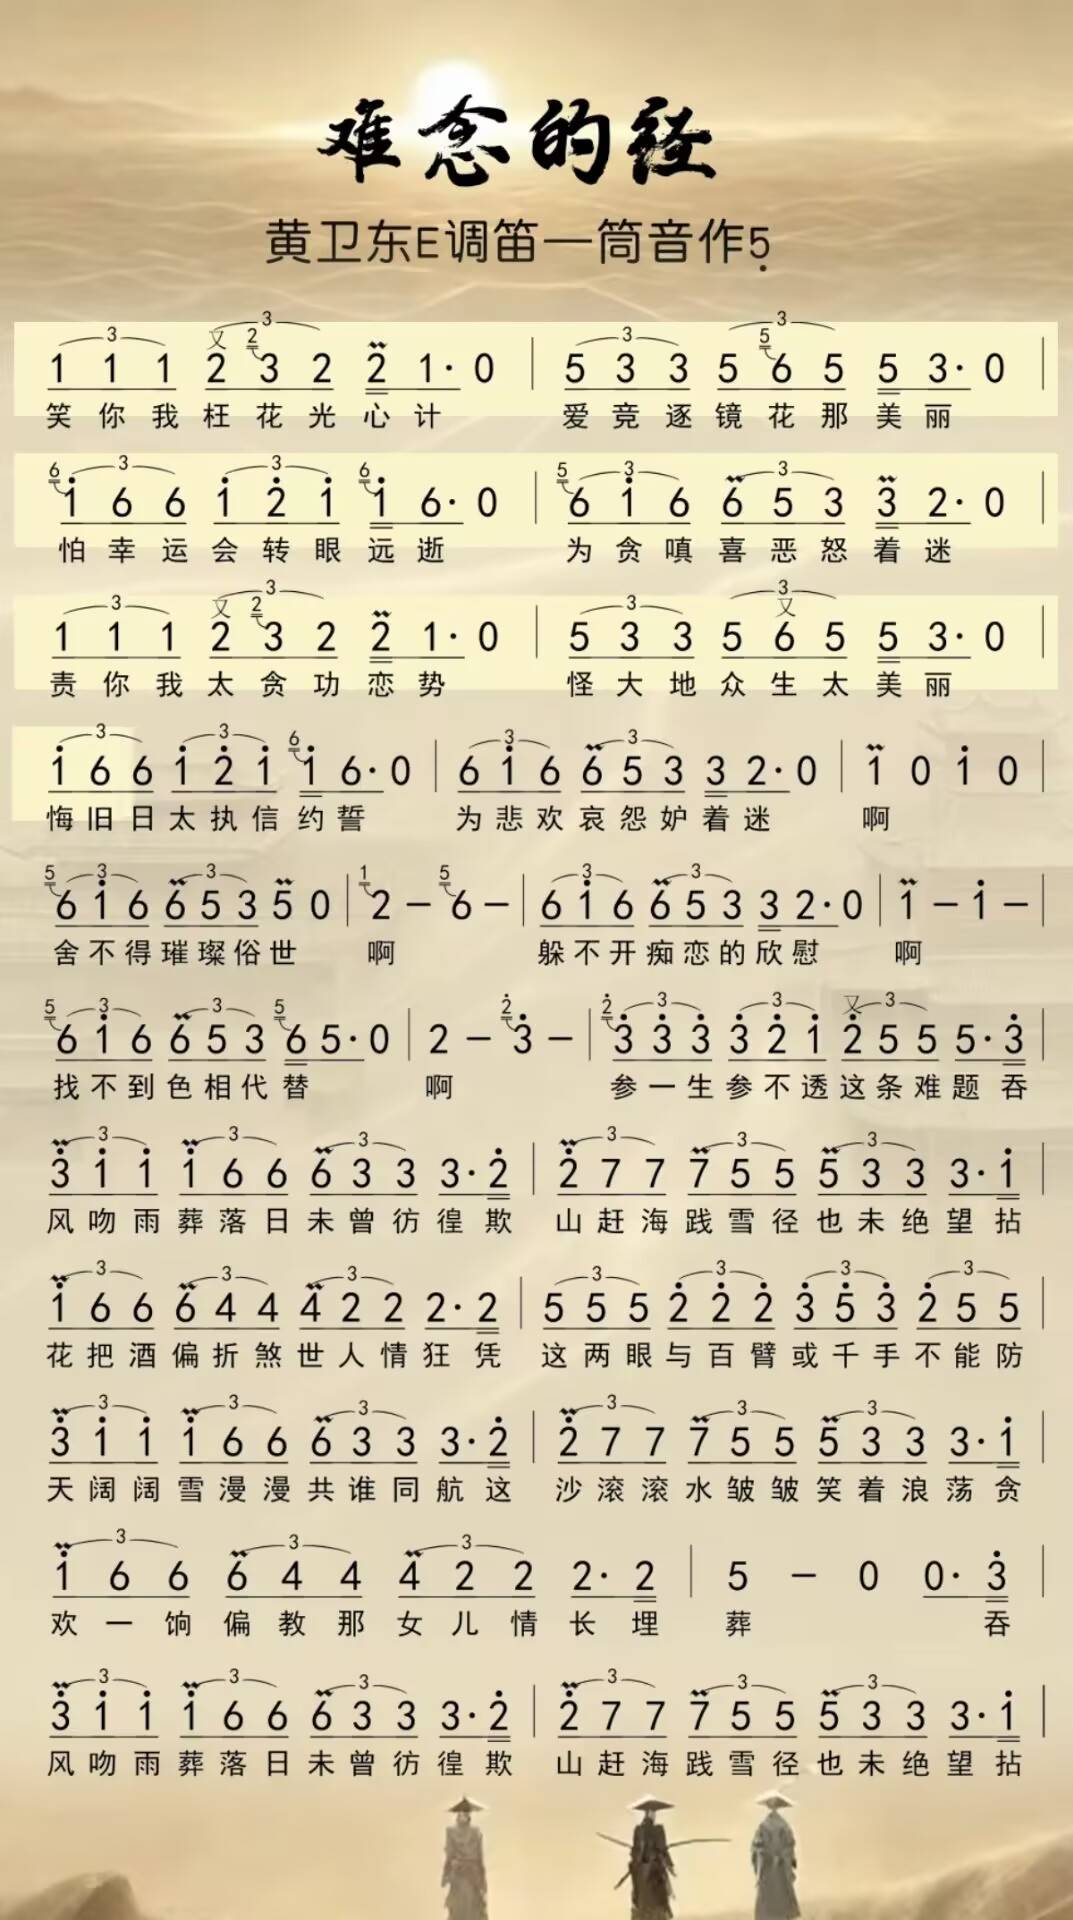 难念的经
黄卫东E调笛—筒音作5̣
3 又 2 3 3 5 3
1 1 1 2 3 2 2 1· 0 | 5 3 3 5 6 5 5 3· 0 |
笑你我枉花光心计 爱竞逐镜花那美丽
6 3 3 6 5 3 3
i 6 6 i 2̇ i i 6· 0 | 6 i 6 6 5 3 3 2· 0 |
怕幸运会转眼远逝 为贪嗔喜恶怒着迷
3 又 2 3 3 3 又
1 1 1 2 3 2 2 1· 0 | 5 3 3 5 6 5 5 3· 0 |
责你我太贪功恋势 怪大地众生太美丽
3 3 6 3 3
i 6 6 i 2̇ i i 6· 0 | 6 i 6 6 5 3 3 2· 0 | i 0 i 0 |
悔旧日太执信约誓 为悲欢哀怨妒着迷 啊
5 3 3 1 5 3 3
6 i 6 6 5 3 5 0 | 2 – 6 – | 6 i 6 6 5 3 3 2· 0 | i – i – |
舍不得璀璨俗世 啊 躲不开痴恋的欣慰 啊
5 3 3 5 2̇ 2̇ 3 3 又 3
6 i 6 6 5 3 6 5· 0 | 2 – 3̇ – | 3̇ 3̇ 3̇ 3̇ 2̇ i 2̇ 5 5 5· 3̇ |
找不到色相代替 啊 参一生参不透这条难题吞
3 3 3 3 3 3
3̇ i i i 6 6 6 3 3 3· 2̇ | 2̇ 7 7 7 5 5 5 3 3 3· i |
风吻雨葬落日未曾彷徨欺 山赶海践雪径也未绝望拈
3 3 3 3 3 3 3
i 6 6 6 4 4 4 2 2 2· 2 | 5 5 5 2̇ 2̇ 2̇ 3̇ 5̇ 3̇ 2̇ 5 5 |
花把酒偏折煞世人情狂凭 这两眼与百臂或千手不能防
3 3 3 3 3 3
3̇ i i i 6 6 6 3 3 3· 2̇ | 2̇ 7 7 7 5 5 5 3 3 3· i |
天阔阔雪漫漫共谁同航这 沙滚滚水皱皱笑着浪荡贪
3 3 3
i 6 6 6 4 4 4 2 2 2· 2 | 5 – 0 0· 3̇ |
欢一饷偏教那女儿情长埋 葬 吞
3 3 3 3 3 3
3̇ i i i 6 6 6 3 3 3· 2̇ | 2̇ 7 7 7 5 5 5 3 3 3· i |
风吻雨葬落日未曾彷徨欺 山赶海践雪径也未绝望拈